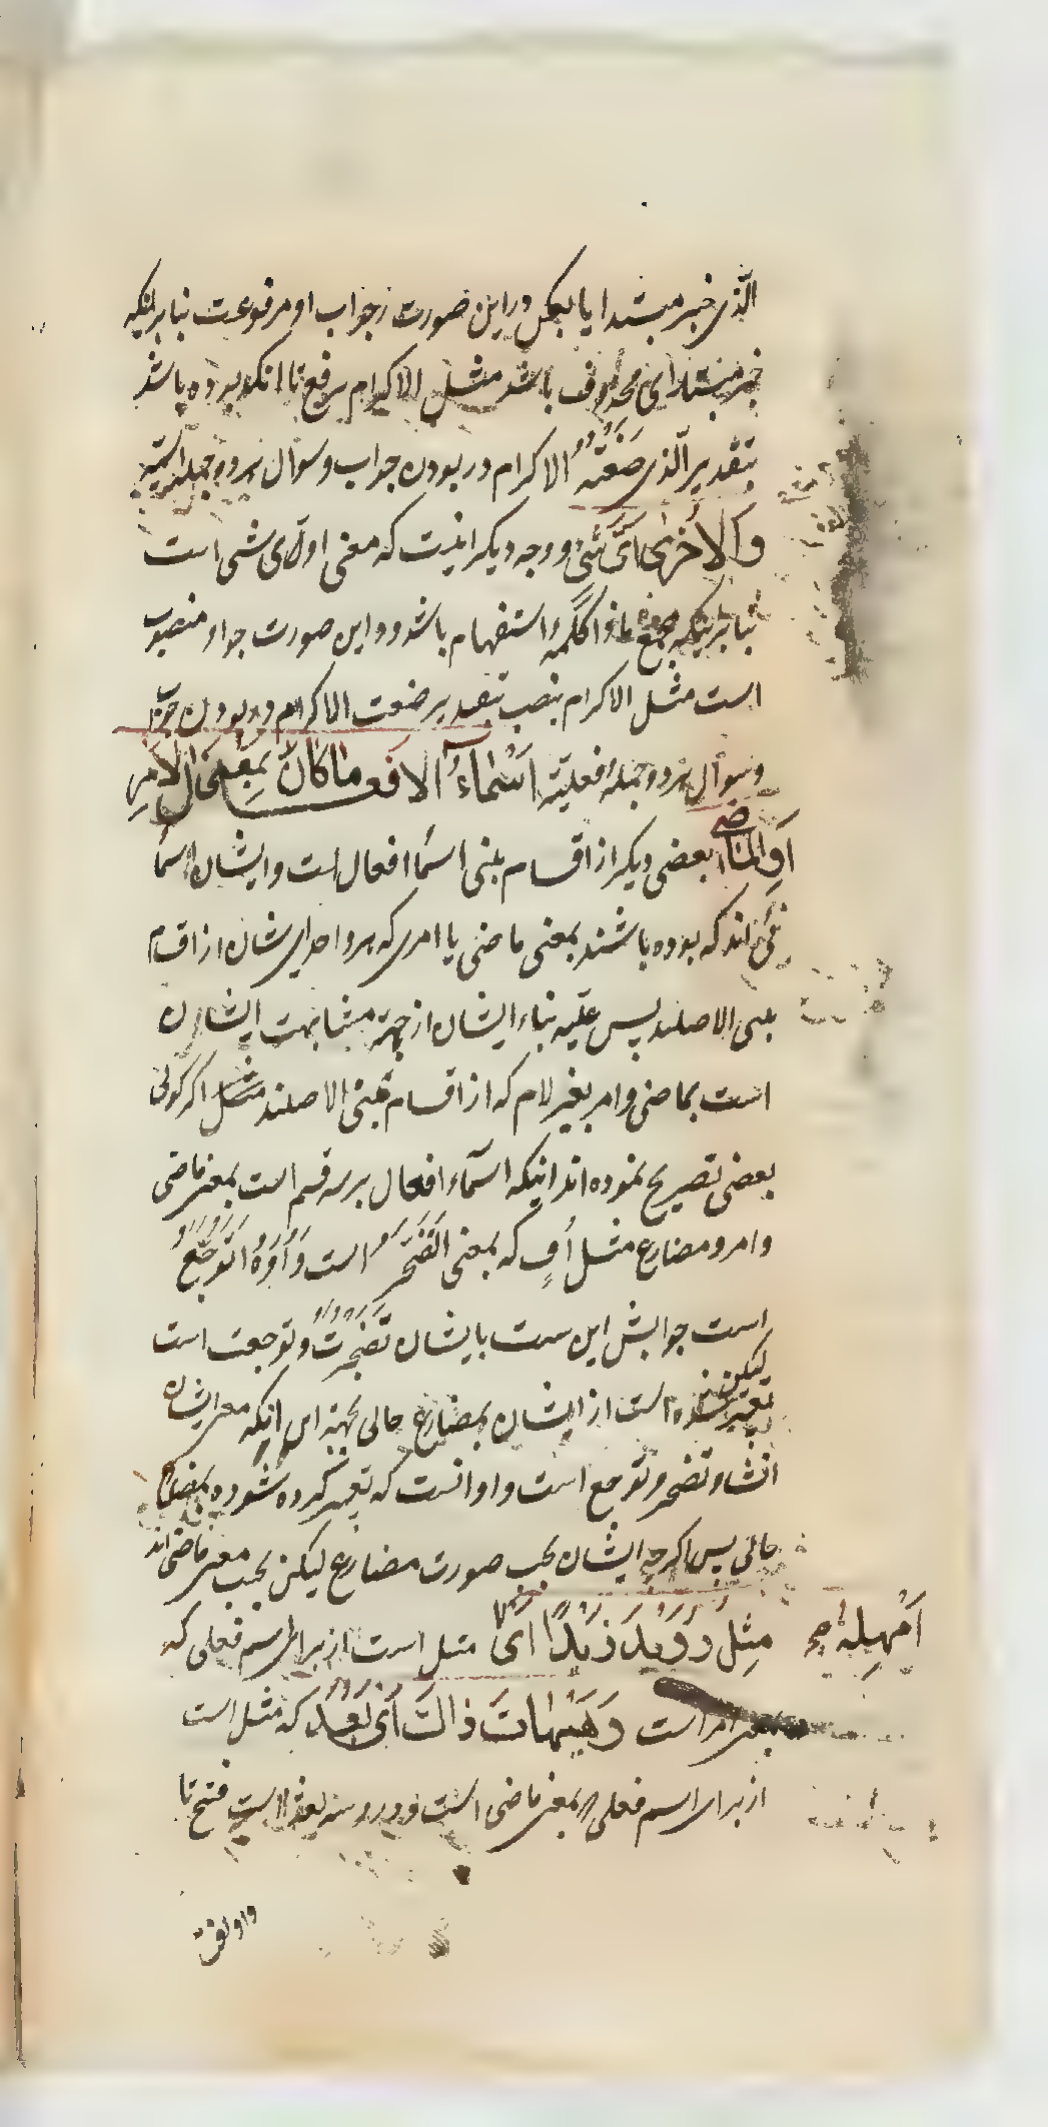 الّذی خبر مبتدا یا بعکس در این صورت جواب او مرفوعست بنابر اینکه
خبر مبتدای محذوف باشد مثل الاکرام برفع تا انکه بوده باشد
بتقدیر الّذی صَنَعْتَهُ الاکرام در بودن جواب و سوال هر دو جمله اسمیّه
وَالاُخْریٰ اَیَّ شَیْءٍ و وجه دیکر اینست که معنی او ای شی است
بنابر اینکه مجموع ماذا کلمه استفهام باشد و در این صورت جواب او منصوب
است مثل الاکرام بنصب بتقدیر صنعت الاکرام در بودن جواب
و سوال هر دو جمله فعلیّه اَسْمٰاءُ الافَعال ماکانَ بِمَعْنَی الاَمْرِ
اَوِ الْمٰاضی بعضی دیکر از اقسام مبنی اسما افعال است و ایشان اسما
اند که بوده باشند بمعنی ماضی یا امری که هر واحد ایشان از اقسام
مبنی الاصلند پس علّیه بناء ایشان از جهة مشابهت ایشان
است بماضی و امر بغیر لام که از اقسام مبنی الاصلند مثل اکر کوئی
بعضی تصریح نموده اند اینکه اسمآء افعال بر سه قسم است بمعنی ماضی
و امر و مضارع مثل اُفٍ که بمعنی اَتَضَجَّرُ است وَ اَوَّهْ اَتَوَجَّعُ
است جوابش این ست بایشان تضجّرتُ و توجعت است
لیکن
تعبیر شده است از ایشان بمضارع حالی بجهة اینکه معنی ایشان
انشاء تضجر و توجع است و او انست که تعبیر کرده شود بمضارع
حالی پس اکرچه ایشان بحسب صورت مضارع لیکن بحسب معنی ماضی اند
مِثْلُ رُوَیْدَ زَیْدًا اَیْ اَمْهِلْهُ صح مثل است از برای اسم فعلی که
بمعنی امر است وَ هَیْهٰاتَ ذٰالَتَ اَیْ بَعُدَ که مثل است
از برای اسم فعلی بمعنی ماضی است و در و سه لغة است فتح تا